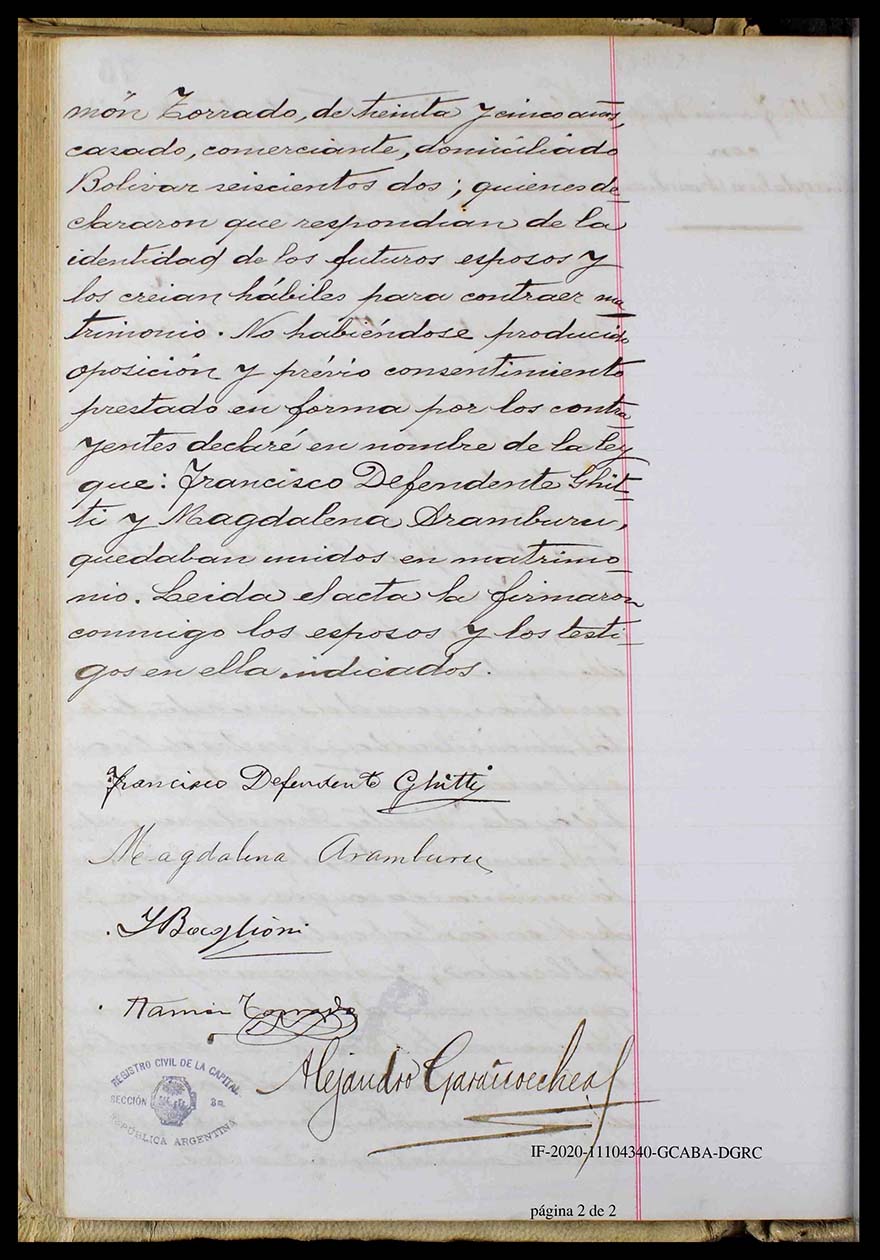 món Zorrado, de treinta y cinco años,
casado, comerciante, domiciliado
Bolivar seiscientos dos; quienes de-
clararon que respondian de la
identidad de los futuros esposos y
los creian hábiles para contraer ma-
trimonio. No habiéndose producido
oposición y prévio consentimiento
prestado en forma por los contra-
yentes declaré en nombre de la ley
que: Francisco Defendente Ghit-
ti y Magdalena Aramburu,
quedaban unidos en matrimo-
nio. Leida el acta la firmaron
conmigo los esposos y los testi-
gos en ella indicados.
Francisco Defendente Ghitti
Magdalena Aramburu
Baglioni
Ramon Zorrado
Alejandro
REGISTRO CIVIL DE LA CAPITAL
SECCIÓN 3a
REPÚBLICA ARGENTINA
IF-2020-11104340-GCABA-DGRC
página 2 de 2